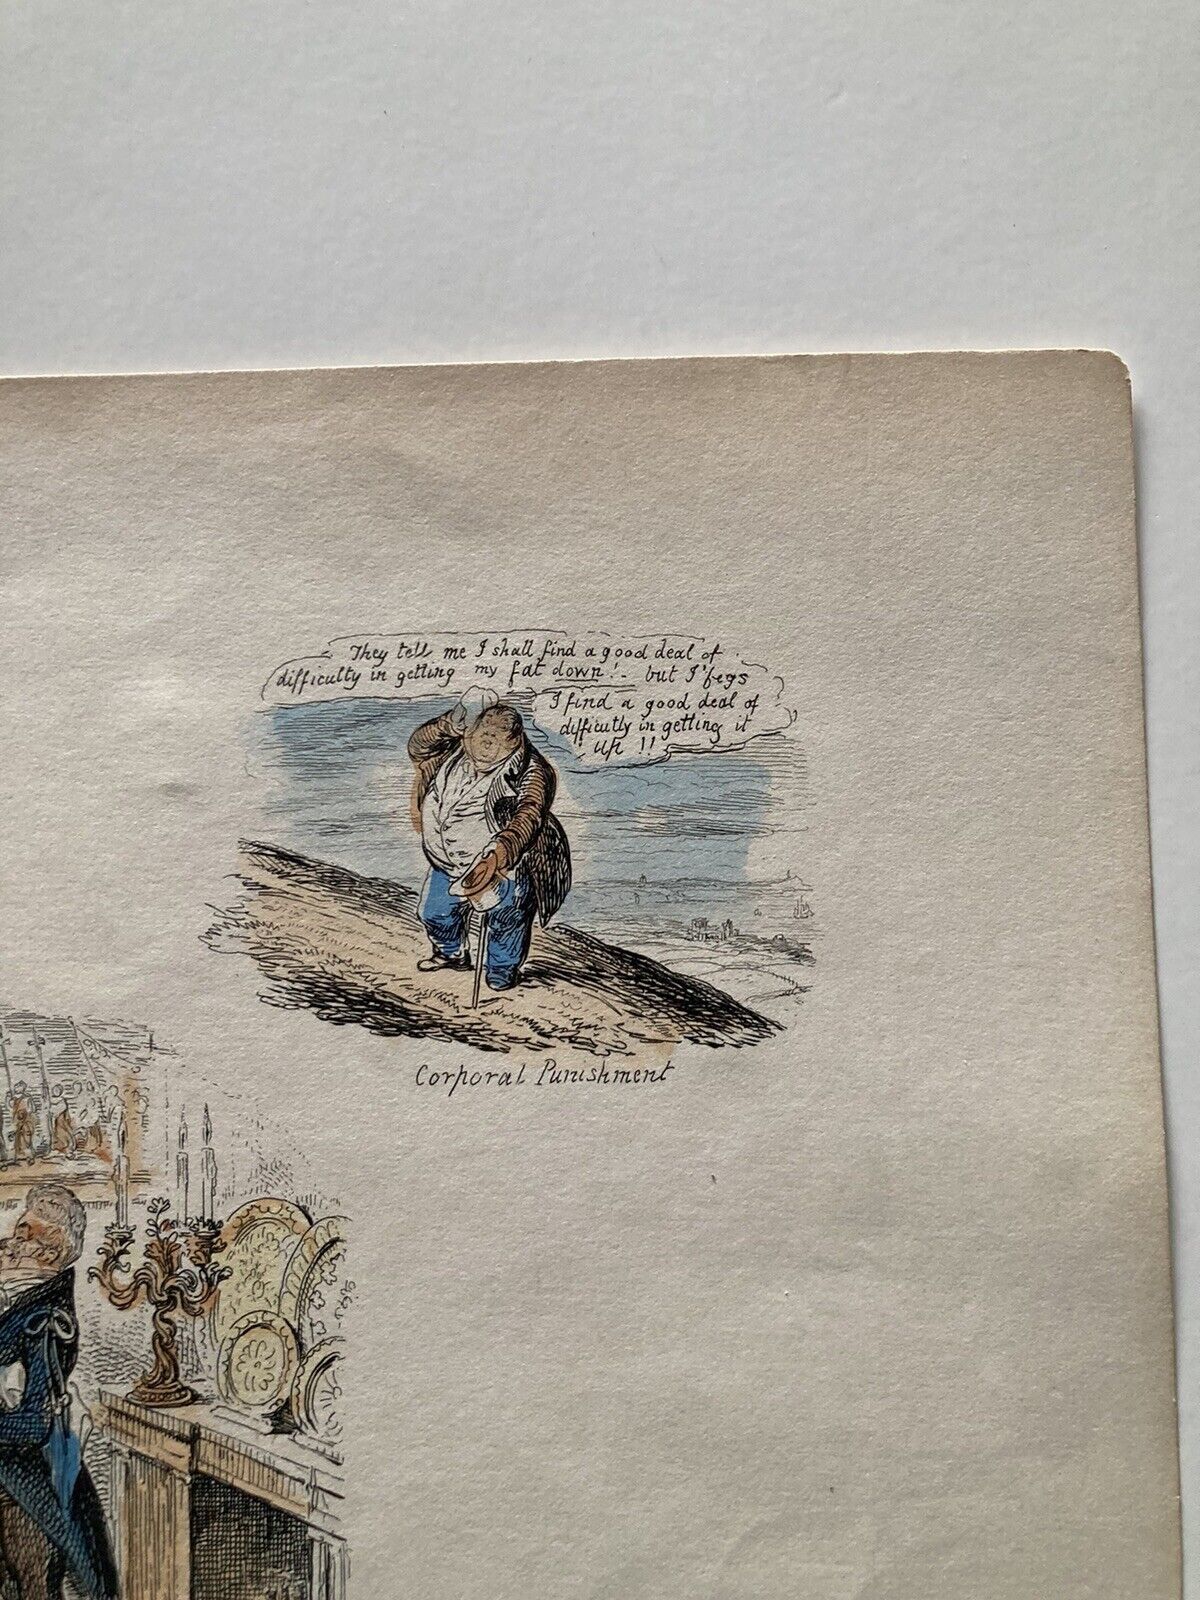 They tell me I shall find a good deal of
difficulty in getting my fat down! - but I'fegs
I find a good deal of
difficulty in getting it
up !!
Corporal Punishment